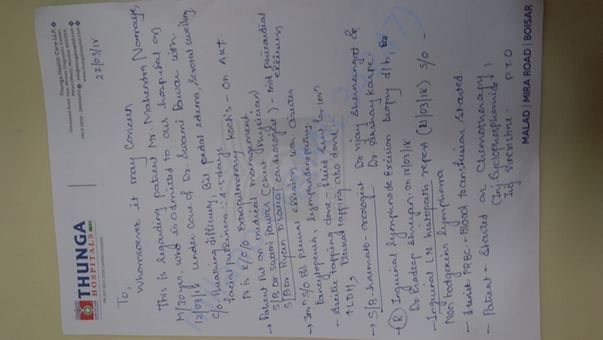 THUNGA
HOSPITALS
Thunga Health Care LLP.
27/03/18
To,
Whomsoever it may Concern
This is regarding patient Mr. Mahendra
M/30yrs, who is admitted to our hospital on
12/03/18 under care of Dr. Swami Pawar with
c/o Breathing difficulty, Bil pedal edema, Scrotal swelling,
facial puffiness : 4-5 days
Pt is K/c/o Extrapulmonary Koch's - On AKT
→ Patient put on medical management
S/B Dr Swami Pawar (Chest Physician)
S/B Dr (cardiologist) - mild pericardial effusion
→ Inv s/o Bil Pleural effusion with Ascites
Pancytopenia, lymphadenopathy
- Ascitic tapping done - fluid sent for inv
Pleural tapping also done
→ S/B haemato-oncologist Dr Vijay &
Dr Akshay
→ (R) Inguinal lymphnode Excision biopsy d/b
Dr Pradeep on /03/18
- Inguinal LN histopath report (21/03/18) s/o -
Non hodgkins lymphoma
- 1 unit PRBC - Blood transfusion started.
- Patient - Started on Chemotherapy
(Inj Cyclophosphamide,
Inj Vincristine.
P.T.O
MALAD | MIRA ROAD | BOISAR